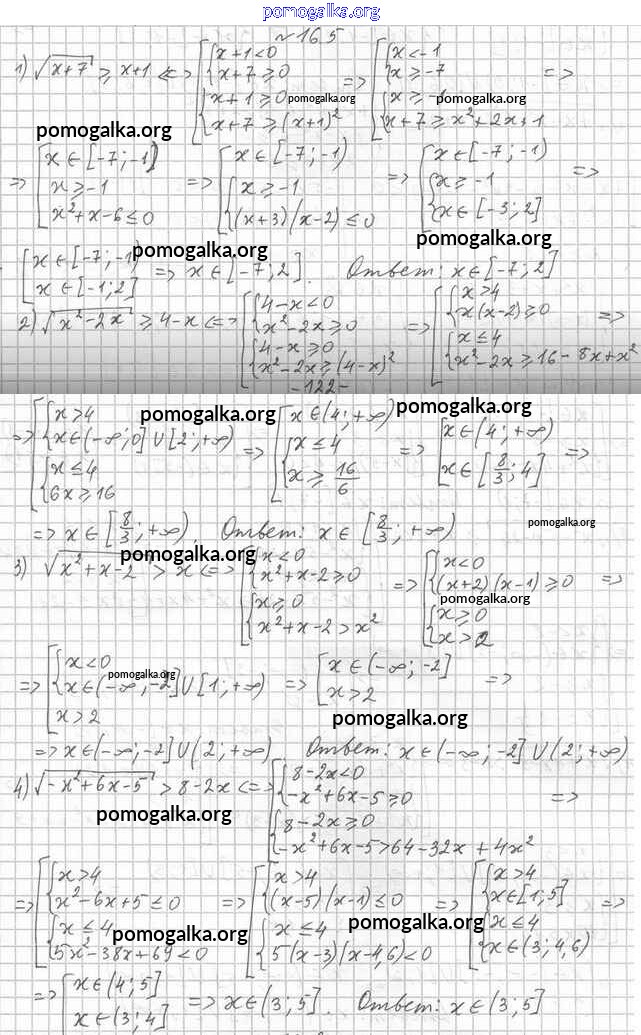 pomogalka.org
№16.5
1) √(x+7) ≥ x+1 <=> [ { x+1<0 { x+7≥0 { x+1≥0 { x+7≥(x+1)² => [ { x<-1 { x≥-7 { x≥-1 { x+7≥x²+2x+1 =>
pomogalka.org
pomogalka.org
pomogalka.org
=> [ x∈[-7;-1) { x≥-1 { x²+x-6≤0 => [ x∈[-7;-1) { x≥-1 { (x+3)(x-2)≤0 => [ x∈[-7;-1) { x≥-1 { x∈[-3;2] =>
pomogalka.org
pomogalka.org
[ x∈[-7;-1) x∈[-1;2] => x∈[-7;2]. Ответ: x∈[-7;2]
2) √(x²-2x) ≥ 4-x <=> [ { 4-x<0 { x²-2x≥0 { 4-x≥0 { x²-2x≥(4-x)² => [ { x>4 { x(x-2)≥0 { x≤4 { x²-2x≥16-8x+x² =>
-122-
pomogalka.org
pomogalka.org
=> [ { x>4 { x∈(-∞;0]∪[2;+∞) { x≤4 { 6x≥16 => [ x∈(4;+∞) { x≤4 { x≥16/6 => [ x∈(4;+∞) x∈[8/3;4] =>
pomogalka.org
=> x∈[8/3;+∞). Ответ: x∈[8/3;+∞)
pomogalka.org
3) √(x²+x-2) > x <=> [ { x<0 { x²+x-2≥0 { x≥0 { x²+x-2>x² => [ { x<0 { (x+2)(x-1)≥0 { x≥0 { x>2 =>
pomogalka.org
=> [ { x<0 { x∈(-∞;-2]∪[1;+∞) x>2 => [ x∈(-∞;-2] x>2 =>
pomogalka.org
pomogalka.org
=> x∈(-∞;-2]∪(2;+∞) Ответ: x∈(-∞;-2]∪(2;+∞)
4) √(-x²+6x-5) > 8-2x <=> [ { 8-2x<0 { -x²+6x-5≥0 { 8-2x≥0 { -x²+6x-5>64-32x+4x² =>
pomogalka.org
=> [ { x>4 { x²-6x+5≤0 { x≤4 { 5x²-38x+69<0 => [ { x>4 { (x-5)(x-1)≤0 { x≤4 { 5(x-3)(x-4,6)<0 => [ { x>4 { x∈[1;5] { x≤4 { x∈(3;4,6) =>
pomogalka.org
pomogalka.org
=> [ x∈(4;5] x∈(3;4] => x∈(3;5]. Ответ: x∈(3;5]